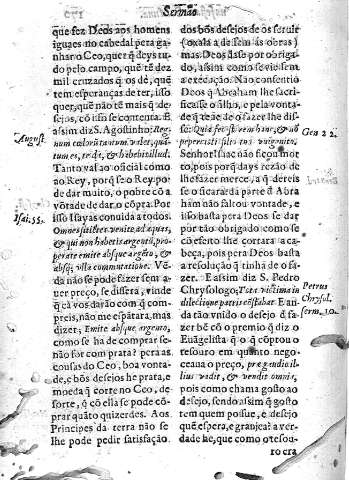 Sermão
que fez Deos aos homens
iguaes no cabedal pera ga-
nhar o Ceo, quer q̃ deys tu-
do pelo campo, quẽ tẽ dez
mil cruzados q̃ os dè, quẽ
tem esperanças de ter, isso
quer, quẽ não tẽ mais q̃ de-
sejos, cõ isso se contenta. E
assim diz S. Agostinho: Reg-
num cœlorũ tantum valet, quã-
tum es, te da, & habebis illud.
Tanto val ao oficial como
ao Rey, porq̃ se o Rey po-
de dar muito, o pobre cõ a
võtade de dar o cõpra. Por
isso Isayas convida a todos.
Omnes sitiẽtes venite ad aquas,
& qui non habetis argentũ, pro-
perate emite absque argẽto, &
absq; ulla commutatione. Vẽ-
da não se pode fazer sem a-
uer preço, se dissera, vinde
q̃ ca vos darão com q̃ com-
preis, não me espãtara, mas
dizer; Emite absque argento,
como se ha de comprar se-
não for com prata? pera as
cousas do Ceo, boa vonta-
de, e bõs desejos he prata, e
moeda q̃ corte no Ceo, de-
sorte, q̃ cõ ella se pode cõ-
prar quãto quizerdes. Aos
Principes da terra não se
lhe pode pedir satisfação
August.
Isai. 55.
dos bõs desejos de os seruir
(oxala a dessem ás obras)
mas Deos dase por obriga-
do, assim como se vio sem
a execação. Não consentio
Deos q̃ Abraham lhe sacri-
ficasse o filho, e pela vonta-
de q̃ teue de o fazer lhe dis-
se: Quia fecisti rem hanc, & nõ
pepercisti filio tuo unigenito.
Senhor Isaac não ficou mor-
to, pois porq̃ days rezão de
lhe fazer merce, a q̃ dereis
se o sicarâra da parte d Abra
ham não faltou vontade, e
isso basta pera Deos se dar
por tão obrigado como se
cõ efeito lhe cortara a ca-
beça, pois pera Deos basta
a resolução q̃ tinha de o fa-
zer. E assim diz S. Pedro
Chrysologo; Tota victima in
dilectione patris cõstabat. E ai-
da tão vnido o desejo d fa-
zer bẽ cõ o premio q̃ diz o
Euãgelista q̃ o q̃ cõprou o
tesouro em quanto nego-
ceaua o preço, præ gaudio il-
lius vadit, & vendit omnia,
pois como chama gosto ao
desejo, sendo assim q̃ gosto
tem quem possue, e desejo
quẽ espera, e grangea? a ver-
dade he, que como o tesou-
Gen 22.
Petrus
Chrysol.
serm. 10.
ro era